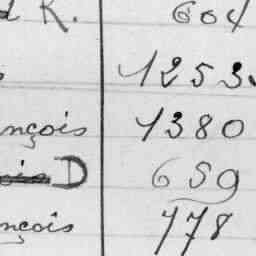 K. 604
1253
nçois 1380
D 659
nçois 778